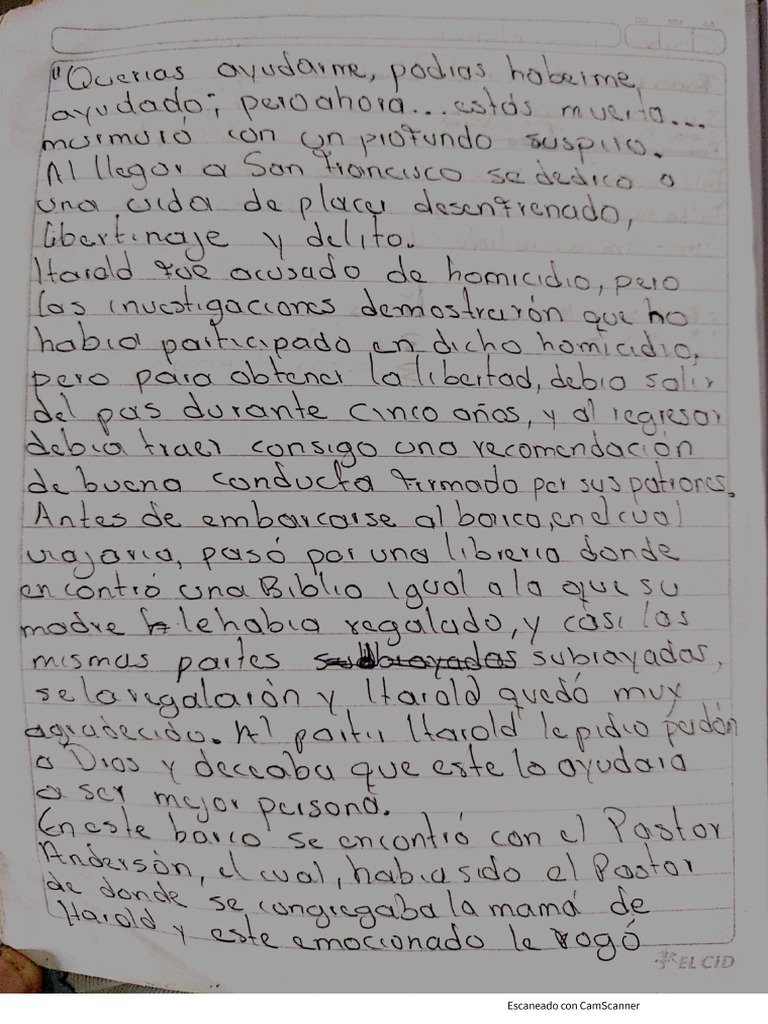 "Querias ayudarme, podias haberme,
ayudado; pero ahora... estás muerta...
murmuró con un profundo suspiro.
Al llegar a San Francisco se dedico a
una vida de placer desenfrenado,
libertinaje y delito.
Harold fue acusado de homicidio, pero
las investigaciones demostrarón que no
habia participado en dicho homicidio,
pero para obtener la libertad, debio salir
del pais durante cinco años, y al regresar
debia traer consigo una recomendación
de buena conducta firmado por sus patrones.
Antes de embarcarse al barco, en el cual
viajaria, pasó por una libreria donde
encontrió una Biblia igual a la que su
madre le habia regalado, y casi las
mismas partes subrayadas,
se la regalarón y Harold quedó muy
agradecido. Al partir Harold le pidio perdón
a Dios y deceaba que este lo ayudara
a ser mejor persona.
En este barco se encontrió con el Pastor
Andersón, el cual, habia sido el Pastor
de donde se congregaba la mamá de
Harold y este emocionado le rogó
EL CID
Escaneado con CamScanner